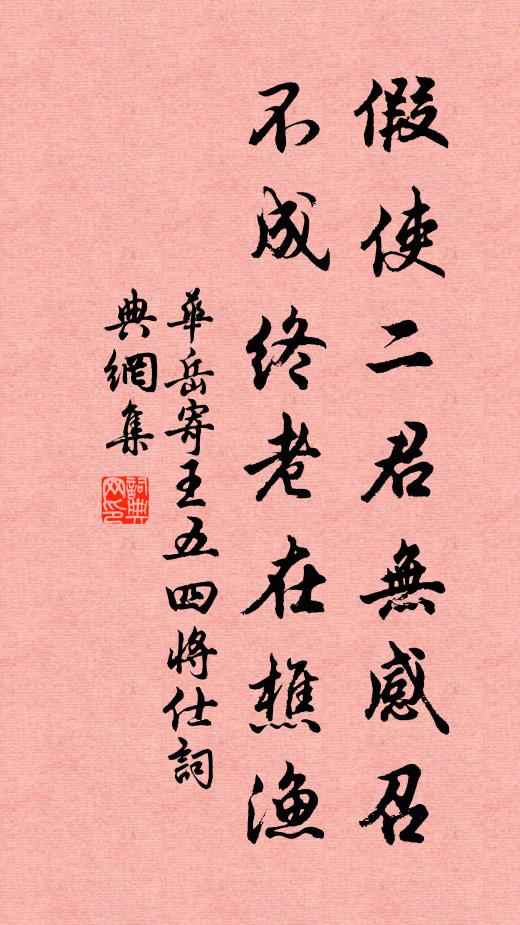 假使二君無感召
不成終老在樵漁
華岳寄王五四將仕詞
典網集
詞典
网印